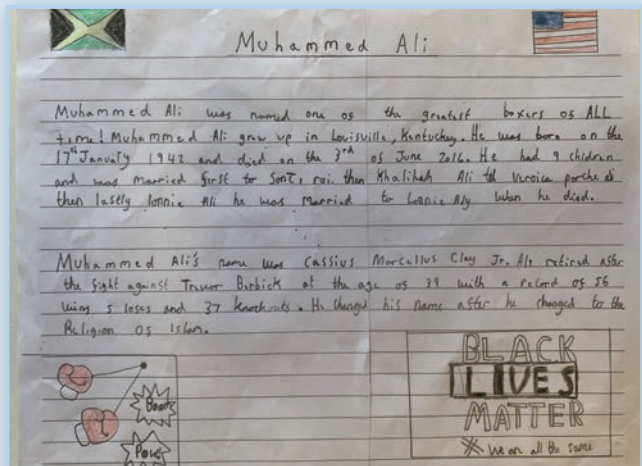 Muhammed Ali
Muhammed Ali was named one of the greatest boxers of ALL
time! Muhammed Ali grew up in Louisville, Kentucky. He was born on the
17th January 1942 and died on the 3rd of June 2016. He had 9 chidren
and was married first to then Khalihah Ali
then lastly lonnie Ali he was married to Lonnie Aly when he died.
Muhammed Ali's name was Cassius Marcellus Clay Jr. Ali retired after
the fight against Trevor Berbick at the age of 39 with a record of 56
wins 5 loses and 37 knockouts. He changed his name after he changed to the
Religion of Islam.
Boom
Pow
BLACK
LIVES
MATTER
# We are all the same